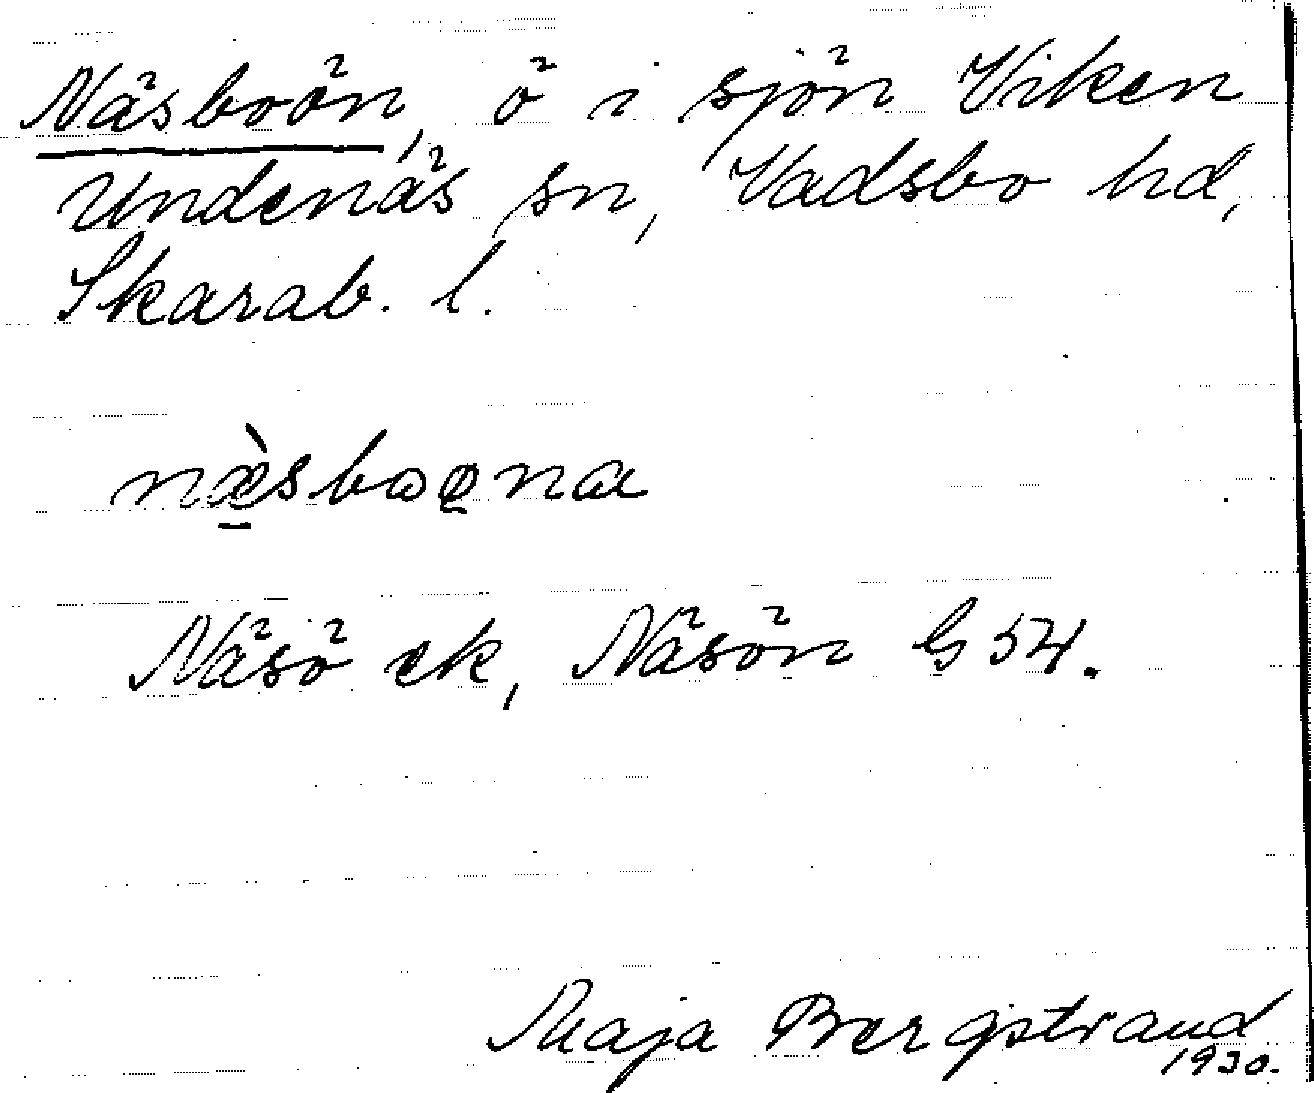 Näsboön, ö i sjön Viken
Undenäs sn, Vadsbo hd,
Skarab. l.
næ̀sboøna
Näsö ek, Näsön G 54.
Maja Bergstrand
1930.